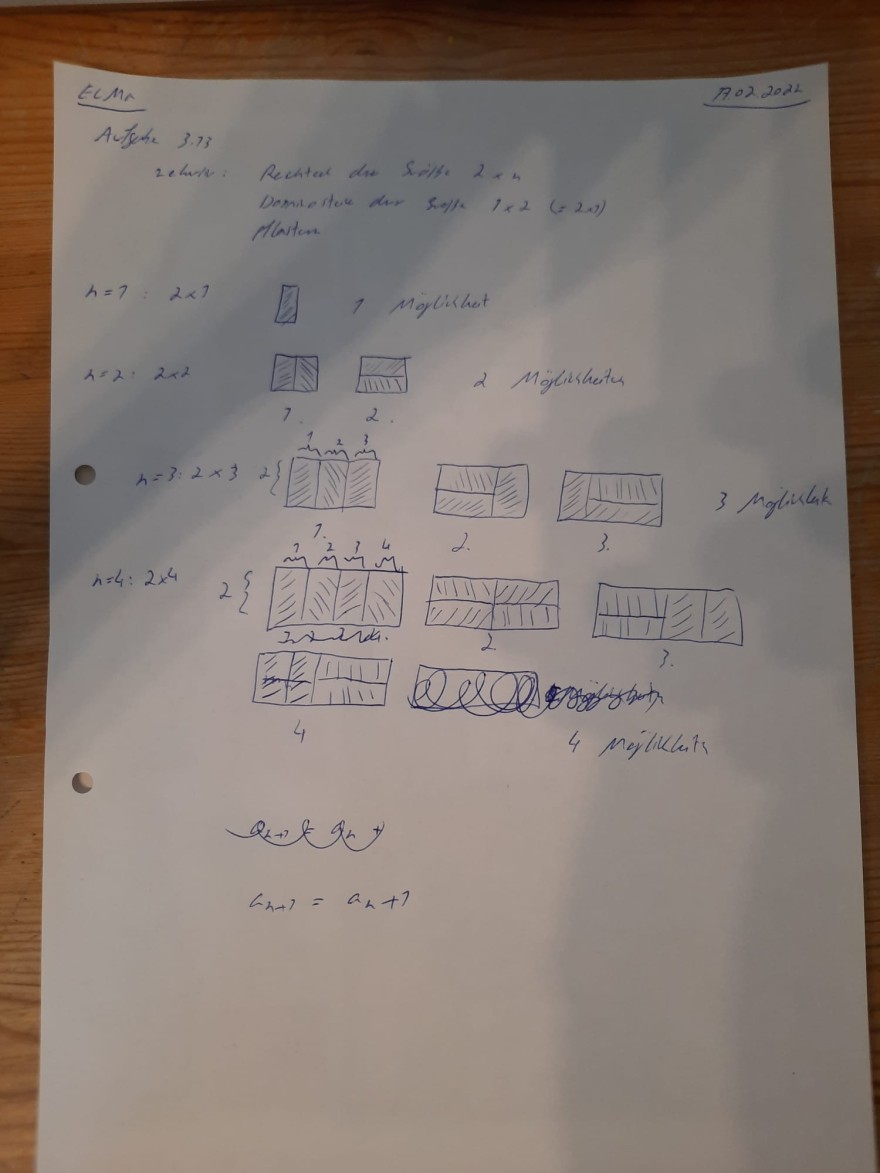 ELMa
17.02.2022
Aufgabe 3.13
Rechteck der Größe 2 x n
Dominosteine der Größe 1 x 2 (= 2x1)
Pflastern
n=1 : 2x1 1 Möglichkeit
n=2: 2x2 2 Möglichkeiten
1. 2.
1 2 3
n=3: 2 x 3 2{ 3 Möglichkeit
1. 2. 3.
1 2 3 4
n=4: 2x4 2{
2 3.
4
4 Möglichkeiten
aₙ₊₁ = aₙ +
aₙ₊₁ = aₙ+1